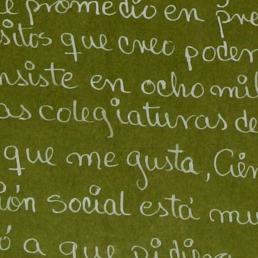 e promedio en pre
sitos que creo poder
nsiste en ocho mil
as colegiaturas de
que me gusta, Cien
ión social está mu
ó a que